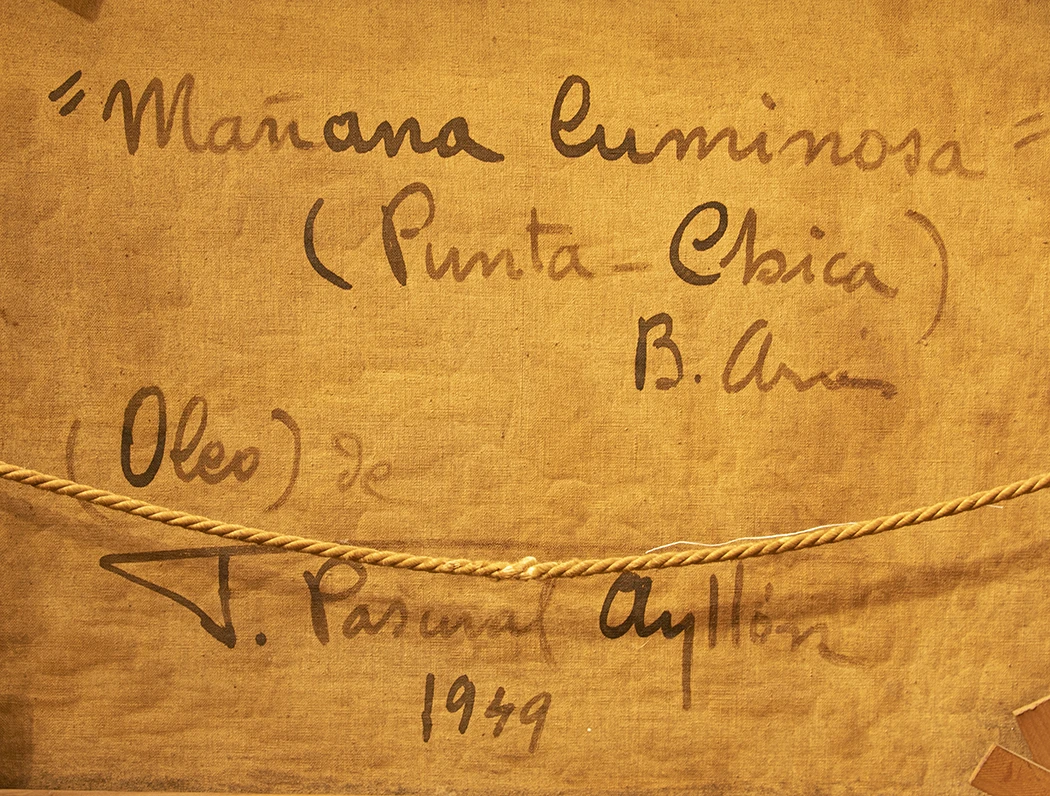 "Mañana luminosa"
(Punta-Chica)
B. Ars
(Oleo) de
J. Pascual Ayllón
1949